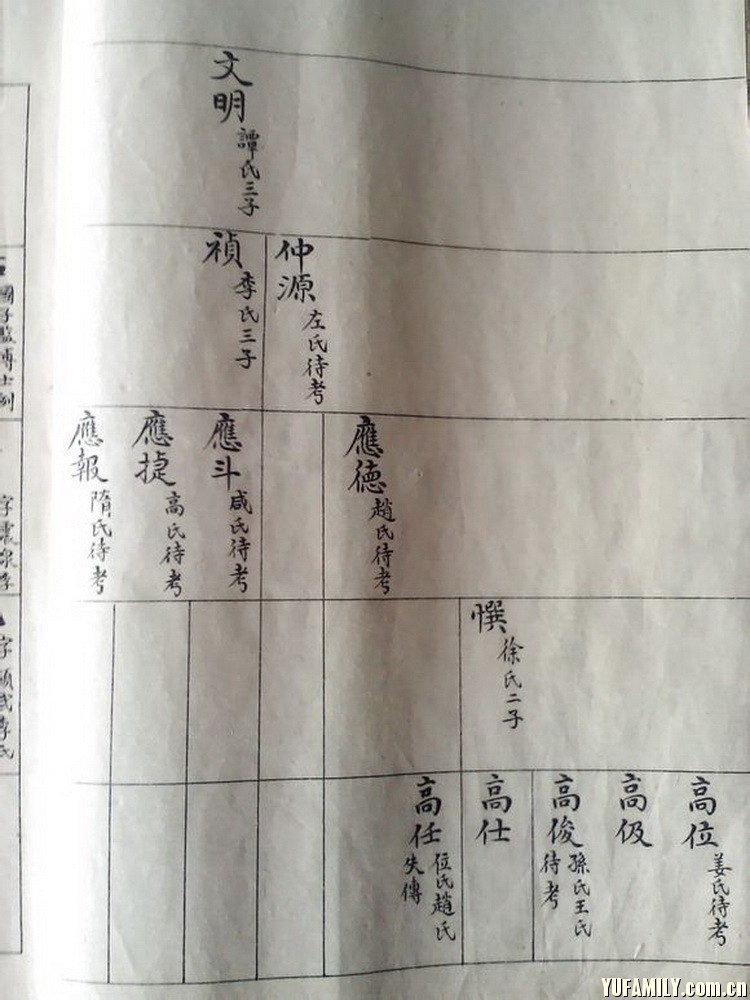 文明
譚氏三子
仲源
左氏待考
禎
李氏三子
應德
趙氏待考
應斗
咸氏待考
應捷
高氏待考
應報
隋氏待考
㦏
徐氏二子
高位
姜氏待考
高伋
高俊
孫氏王氏
待考
高仕
高任
位氏趙氏
失傳
國子監博士
字
字
YUFAMILY.com.cn